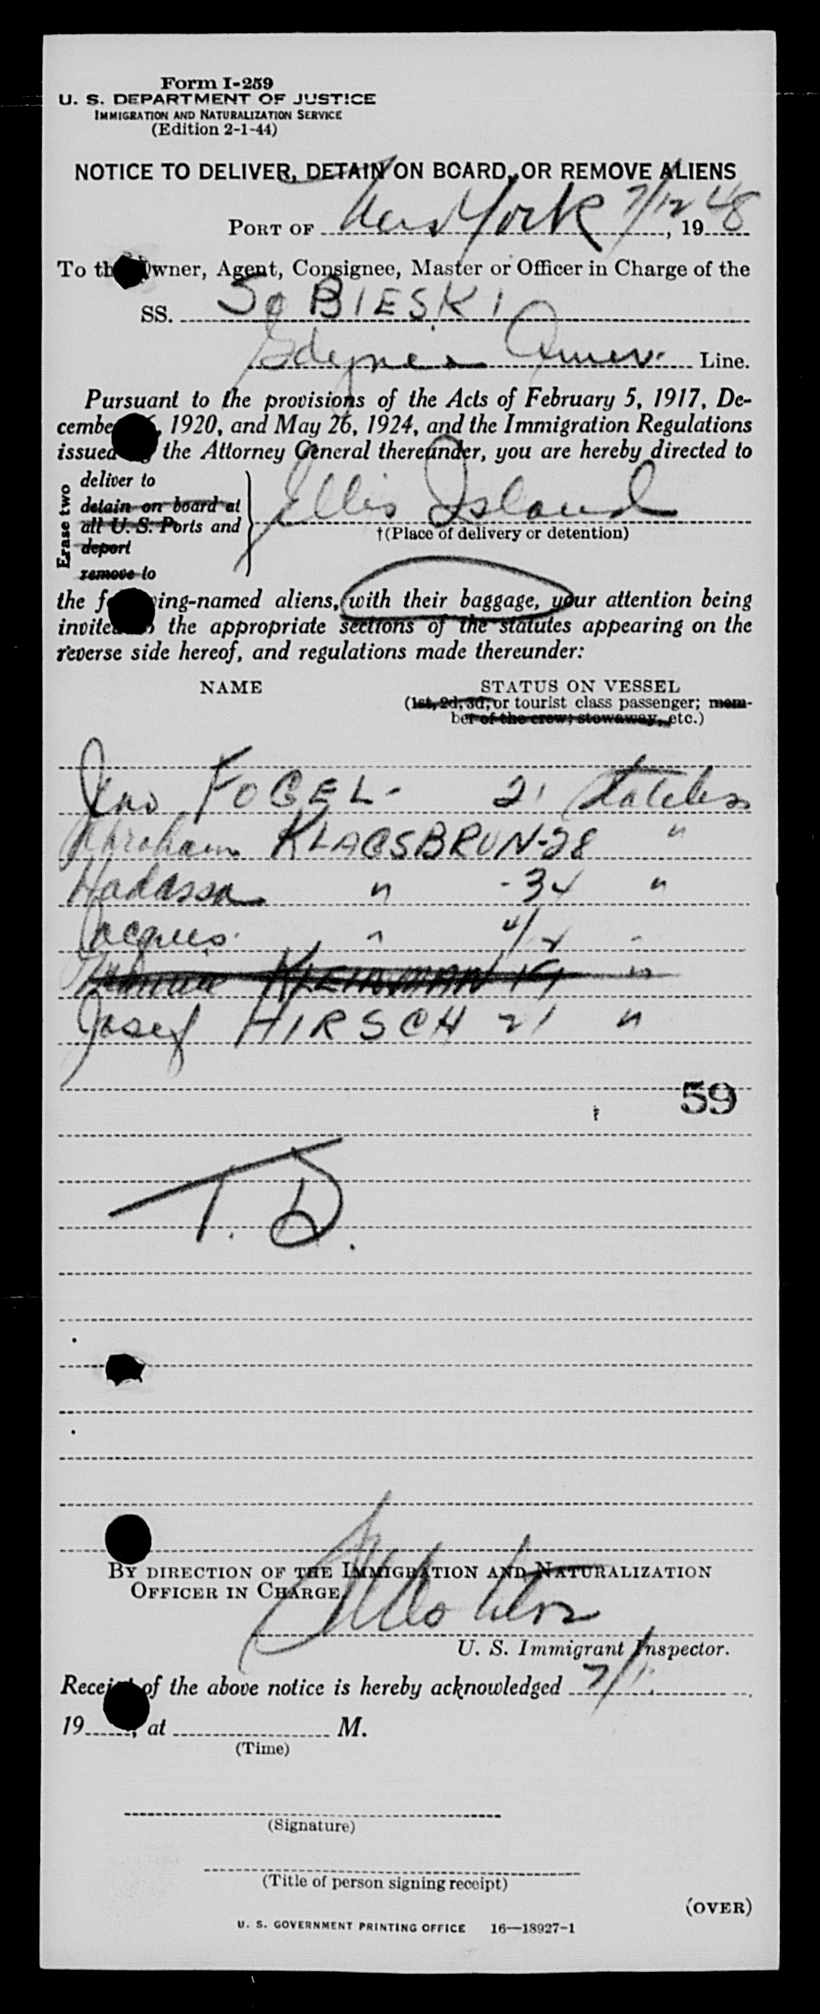 Form I-259
U. S. DEPARTMENT OF JUSTICE
IMMIGRATION AND NATURALIZATION SERVICE
(Edition 2-1-44)
NOTICE TO DELIVER, DETAIN ON BOARD, OR REMOVE ALIENS
PORT OF New York 7/12, 1948
To the Owner, Agent, Consignee, Master or Officer in Charge of the
SS. SOBIESKI
Gdynia Amer. Line.
Pursuant to the provisions of the Acts of February 5, 1917, De-
cember , 1920, and May 26, 1924, and the Immigration Regulations
issued by the Attorney General thereunder, you are hereby directed to
Erase two
deliver to
detain on board at
all U. S. Ports and
deport
remove to
Ellis Island
†(Place of delivery or detention)
the following-named aliens, with their baggage, your attention being
invited to the appropriate sections of the statutes appearing on the
reverse side hereof, and regulations made thereunder:
NAME STATUS ON VESSEL
(1st, 2d, 3d, or tourist class passenger; mem-
ber of the crew; stowaway, etc.)
Jeno FOGEL - 21 Stateless
Abraham KLAGSBRUN - 28 "
Hadassa " - 34 "
Jacques " "
KLEINMAN 19 "
Josef HIRSCH 21 "
59
T. D.
BY DIRECTION OF THE IMMIGRATION AND NATURALIZATION
OFFICER IN CHARGE,
U. S. Immigrant Inspector.
Receipt of the above notice is hereby acknowledged
19 , at M.
(Time)
(Signature)
(Title of person signing receipt)
(OVER)
U. S. GOVERNMENT PRINTING OFFICE 16—18927-1